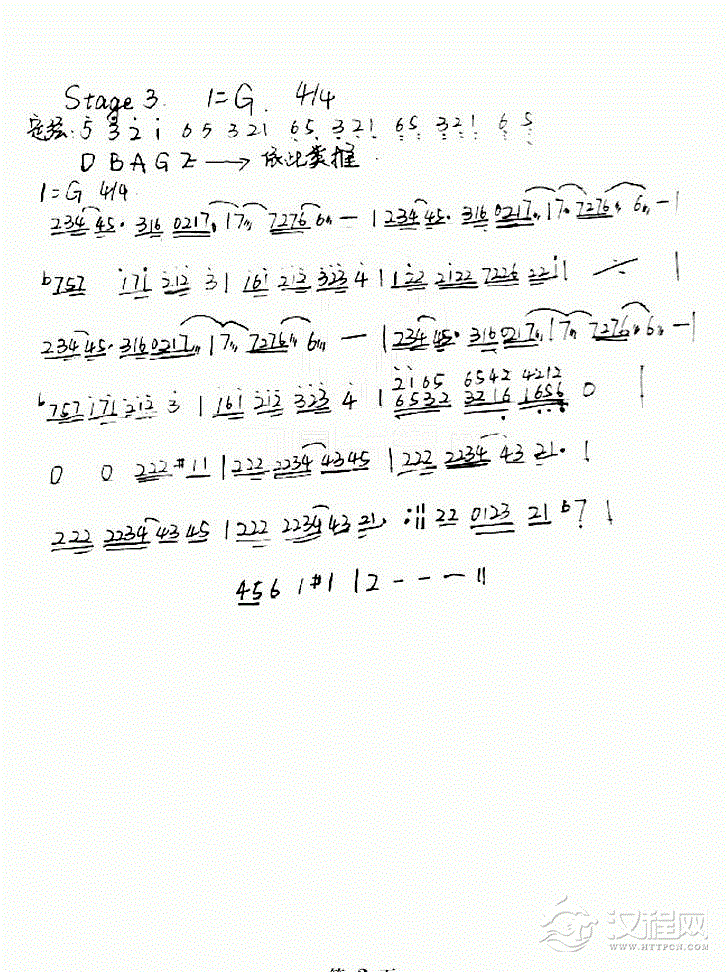 Stage 3. 1=G. 4/4
定弦: 5 3 2 i 6 5 3 2 1 6 5 3 2 1 6 5 3 2 1 6 5
D B A G E → 依此类推.
1=G 4/4
234 45· 316 0217 17 7276 6 — | 234 45· 316 0217 17 7276 6 — |
b757 171 212 3 | 161 212 323 4 | 122 2122 7226 221 | ∕ |
234 45· 316 0217 17 7276 6 — | 234 45· 316 0217 17 7276 6 — |
2165 6542 4212
b757 171 212 3 | 161 212 323 4 | 6532 3216 1656 0 |
0 0 222 #11 | 222 2234 4345 | 222 2234 43 21· |
222 2234 43 45 | 222 2234 43 21· :|| 22 0123 21 b7 |
456 1 #1 | 2 - - - ||
汉程网
WWW.HTTPCN.COM